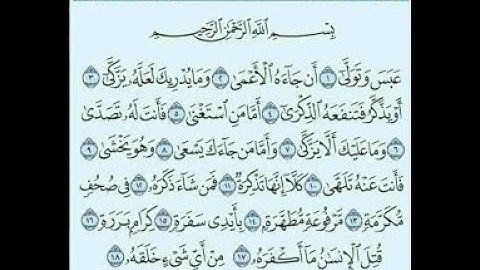 بِسْمِ اللَّهِ الرَّحْمَٰنِ الرَّحِيمِ
عَبَسَ وَتَوَلَّىٰٓ ١ أَن جَآءَهُ ٱلْأَعْمَىٰ ٢ وَمَا يُدْرِيكَ لَعَلَّهُۥ يَزَّكَّىٰٓ ٣
أَوْ يَذَّكَّرُ فَتَنفَعَهُ ٱلذِّكْرَىٰٓ ٤ أَمَّا مَنِ ٱسْتَغْنَىٰ ٥ فَأَنتَ لَهُۥ تَصَدَّىٰ
٦ وَمَا عَلَيْكَ أَلَّا يَزَّكَّىٰ ٧ وَأَمَّا مَن جَآءَكَ يَسْعَىٰ ٨ وَهُوَ يَخْشَىٰ ٩
فَأَنتَ عَنْهُ تَلَهَّىٰ ١٠ كَلَّآ إِنَّهَا تَذْكِرَةٌ ١١ فَمَن شَآءَ ذَكَرَهُۥ ١٢ فِى صُحُفٍ
مُّكَرَّمَةٍ ١٣ مَّرْفُوعَةٍ مُّطَهَّرَةٍۭ ١٤ بِأَيْدِى سَفَرَةٍ ١٥ كِرَامٍۭ بَرَرَةٍ ١٦
قُتِلَ ٱلْإِنسَٰنُ مَآ أَكْفَرَهُۥ ١٧ مِنْ أَىِّ شَىْءٍ خَلَقَهُۥ ١٨